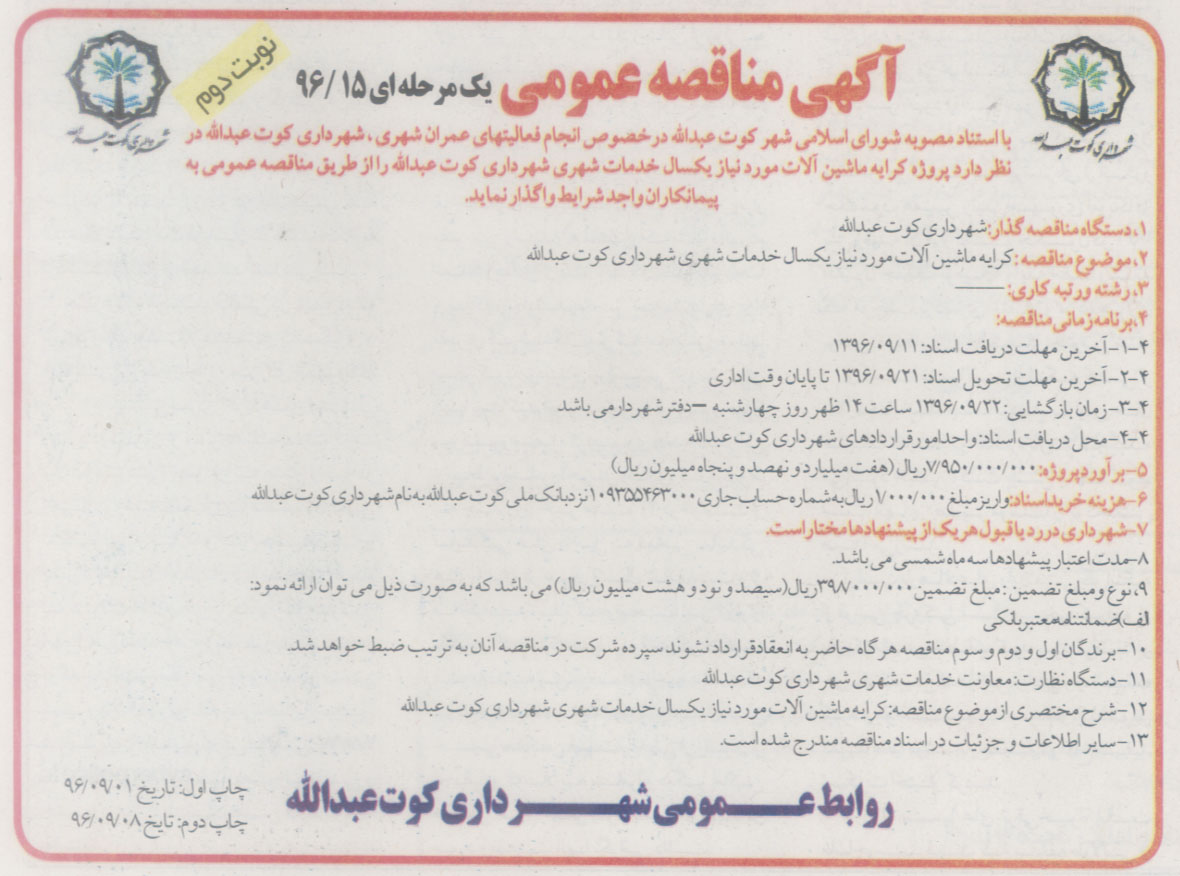 نوبت دوم
آگهی مناقصه عمومی یک مرحله ای ۹۶/۱۵
با استناد مصوبه شورای اسلامی شهر کوت عبدالله درخصوص انجام فعالیتهای عمران شهری، شهرداری کوت عبدالله در
نظر دارد پروژه کرایه ماشین آلات مورد نیاز یکسال خدمات شهری شهرداری کوت عبدالله را از طریق مناقصه عمومی به
پیمانکاران واجد شرایط واگذار نماید.
۱، دستگاه مناقصه گذار: شهرداری کوت عبدالله
۲، موضوع مناقصه: کرایه ماشین آلات مورد نیاز یکسال خدمات شهری شهرداری کوت عبدالله
۳، رشته ورتبه کاری: ———
۴، برنامه زمانی مناقصه:
۴-۱- آخرین مهلت دریافت اسناد: ۱۳۹۶/۰۹/۱۱
۴-۲- آخرین مهلت تحویل اسناد: ۱۳۹۶/۰۹/۲۱ تا پایان وقت اداری
۴-۳- زمان بازگشایی: ۱۳۹۶/۰۹/۲۲ ساعت ۱۴ ظهر روز چهارشنبه – دفتر شهردار می باشد
۴-۴- محل دریافت اسناد: واحد امور قراردادهای شهرداری کوت عبدالله
۵- برآورد پروژه: ۷/۹۵۰/۰۰۰/۰۰۰ ریال (هفت میلیارد و نهصد و پنجاه میلیون ریال)
۶- هزینه خرید اسناد: واریز مبلغ ۷/۰۰۰/۰۰۰ ریال به شماره حساب جاری ۱۰۹۳۵۵۴۶۳۰۰۰ نزد بانک ملی کوت عبدالله به نام شهرداری کوت عبدالله
۷- شهرداری در رد یا قبول هر یک از پیشنهادها مختار است.
۸- مدت اعتبار پیشنهادها سه ماه شمسی می باشد.
۹، نوع و مبلغ تضمین: مبلغ تضمین ۳۹۸/۰۰۰/۰۰۰ ریال (سیصد و نود و هشت میلیون ریال) می باشد که به صورت ذیل می توان ارائه نمود:
الف) ضمانتنامه معتبر بانکی
۱۰- برندگان اول و دوم و سوم مناقصه هرگاه حاضر به انعقاد قرارداد نشوند سپرده شرکت در مناقصه آنان به ترتیب ضبط خواهد شد.
۱۱- دستگاه نظارت: معاونت خدمات شهری شهرداری کوت عبدالله
۱۲- شرح مختصری از موضوع مناقصه: کرایه ماشین آلات مورد نیاز یکسال خدمات شهری شهرداری کوت عبدالله
۱۳- سایر اطلاعات و جزئیات در اسناد مناقصه مندرج شده است.
روابط عمومی شهرداری کوت عبدالله
چاپ اول: تاریخ ۹۶/۰۹/۰۱
چاپ دوم: تایخ ۹۶/۰۹/۰۸
شهرداری کوت عبدالله
شهرداری کوت عبدالله